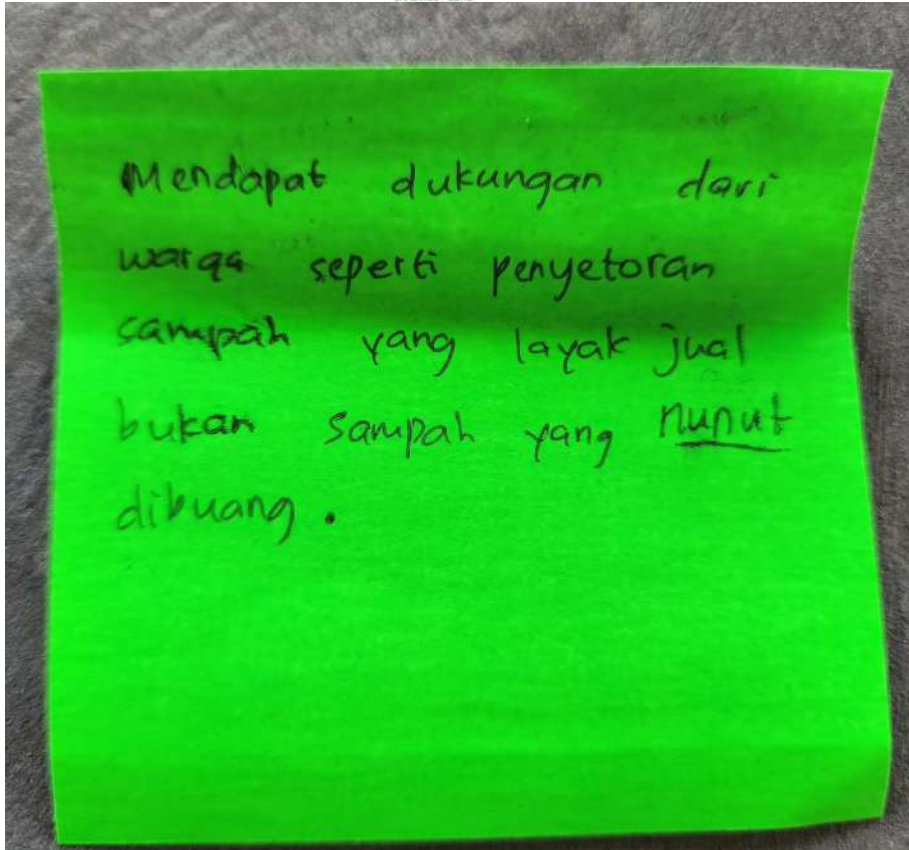 Mendapat dukungan dari
warga seperti penyetoran
sampah yang layak jual
bukan sampah yang nunut
dibuang.